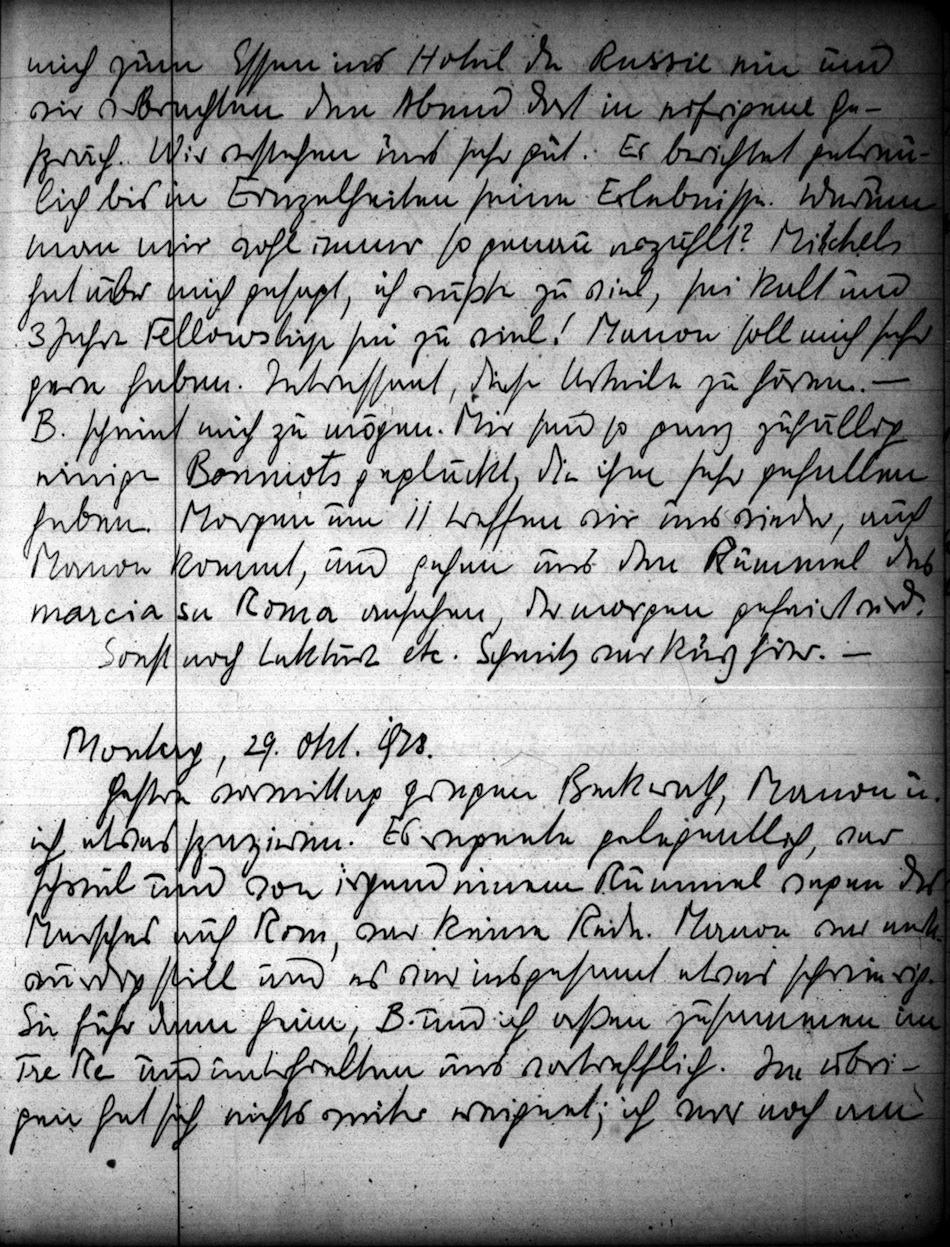 mich zum Essen ins Hotel de Russie ein und
wir verbrachten den Abend dort in eifrigem Ge-
spräch. Wir verstehen uns sehr gut. Er berichtet getreu-
lich bis in Einzelheiten seine Erlebnisse. Warum
man mir wohl immer so genau erzählt? Mitchels
hat über mich gesagt, ich wüßte zu viel, sei kalt und
3 Jahre Fellowship sei zu viel! Manon soll mich sehr
gern haben. Interessant, diese Urteile zu hören. —
B. scheint mich zu mögen. Mir sind so ganz zufällig
einige Bonmots geglückt, die ihm sehr gefallen
haben. Morgen um 11 treffen wir uns wieder, auch
Manon kommt, und gehen uns den Rummel des
marcia su Roma ansehen, der morgen gefeiert wird.
Sonst noch Lektüre etc. Schmitz war kurz hier. —
Montag, 29. Okt. 1928.
Gestern vormittag gingen Beckerath, Manon u.
ich etwas spazieren. Es regnete gelegentlich, war
schwül und von irgend einem Rummel wegen des
Marsches auf Rom, war keine Rede. Manon war merk-
würdig still und es war insgesamt etwas schwierig.
Sie fuhr dann heim, B. und ich aßen zusammen im
Tre Re und unterhielten uns vortrefflich. Im übri-
gen hat sich nichts weiter ereignet; ich war noch am